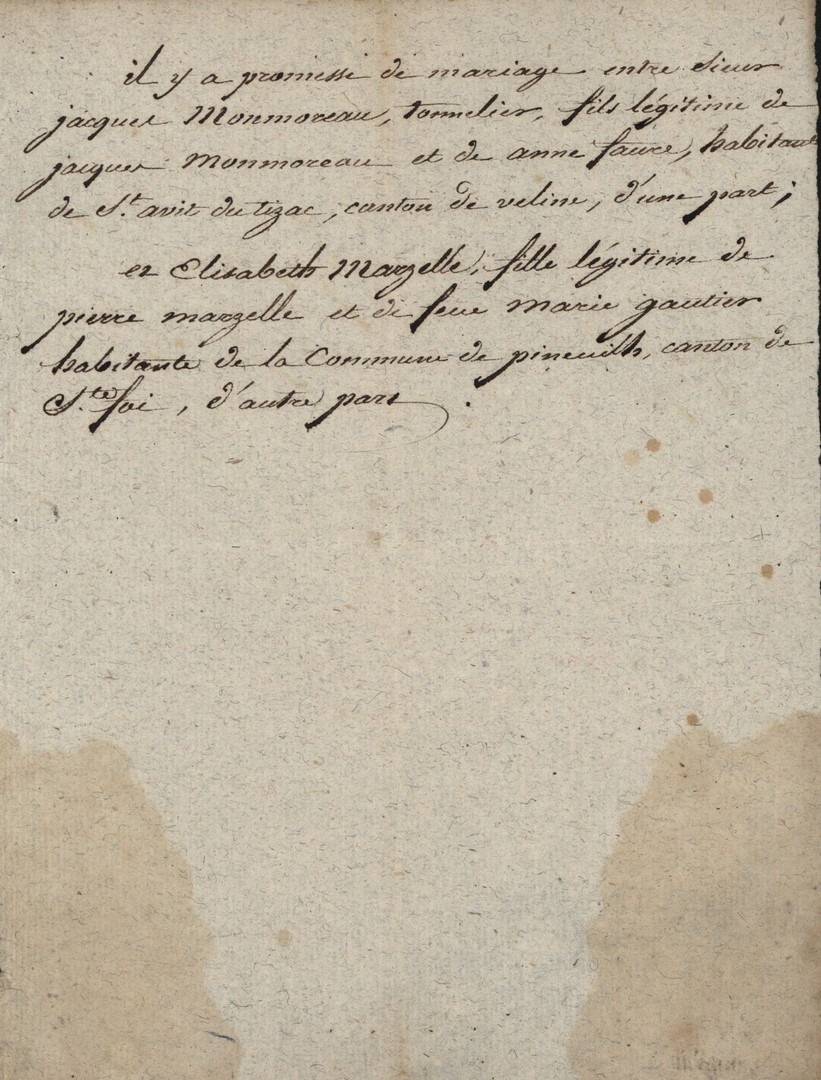 il y a promesse de mariage entre Sieur
jacques Monmoreau, tonnelier, fils légitime de
jacques Monmoreau et de anne faure, habitant
de St. avit du tizac, canton de veline, d'une part;
et Elisabeth Marzelle, fille légitime de
pierre marzelle et de feue Marie gautier
habitante de la Commune de pineuilh, canton de
Ste. foi, d'autre part.